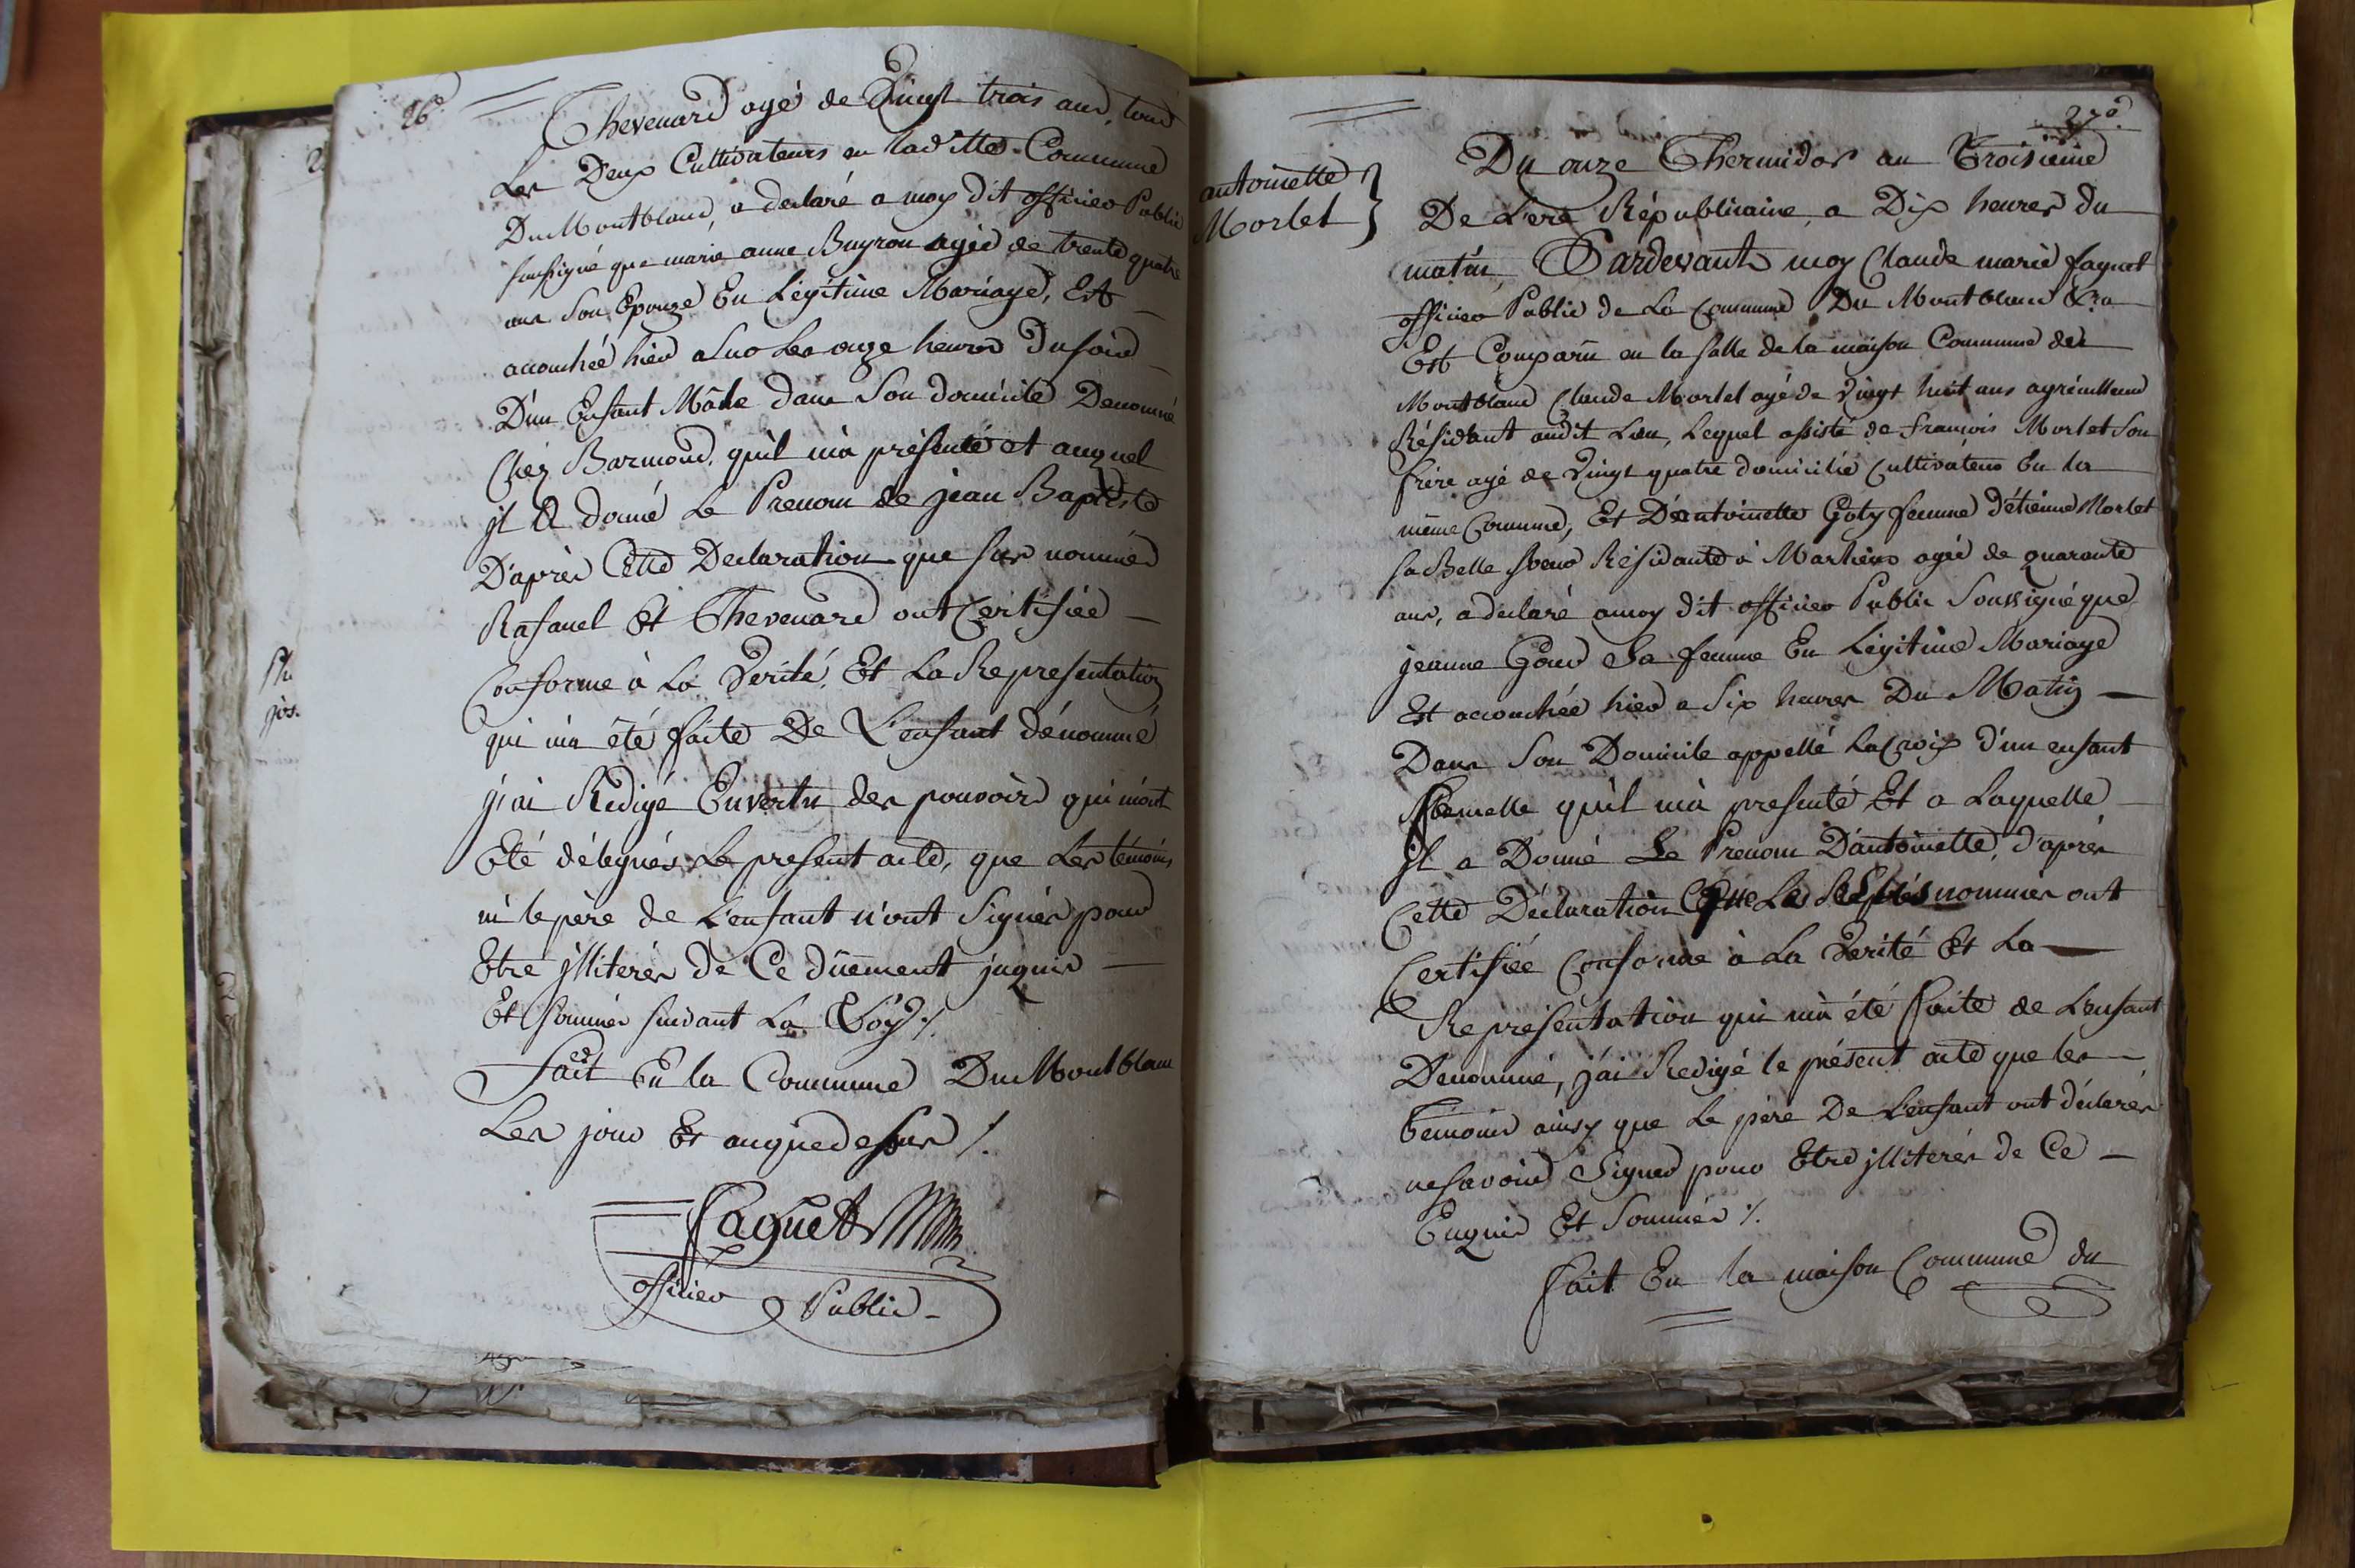 26e
Thevenard agé de Vingt trois ans, tous
Les Deux Cultivateurs en laditte Commune
Du Montblanc, a declaré a moy dit officier Public
soussigné que marie anne Buyron agée de trente quatre
ans Son Epouze En Légitime Mariage, Est
accouchée hier a Sur Les onze heures du soir
D'un Enfant Mâle dans Son domicile Denommé
Chez Barmond, qu'il m'a présenté et auquel
jl A donné Le Prenom de jean Baptiste
D'après Cette Declaration que sus nommés
Rafanel Et Thevenard ont Certifiée
Conforme à La Verité, Et La Representation
qui m'a été faite De L'enfant dénommé
j'ai Redigé Envertu des pouvoirs qui m'ont
Eté délegués Le present acte, que Les témoins
ni le père de L'enfant n'ont Signés pour
Etre jlliterés de Ce dûement jnquis
Et Sommés suivant La Loy ./.
Fait En la Commune Du Montblanc
Les jour Et anquedessus ./.
Faguet
officier Public
27e
antoinette
Morlet
Du onze Thermidor an Troisieme
De L'ere Républicaine, a Dix heures du
matin, Pardevant moy Claude marie faguet
officier Public de La Commune Du Montblanc &ra
Est Comparu en la salle de la maison Commune de
Montblanc Claude Morlet agé de Vingt huit ans agriculteur
Résidant audit Lieu, Lequel assisté de francois Morlet Son
frère agé de Vingt quatre domicilié Cultivateur En la
même Commune, Et D'antoinette Goty femme d'étienne Morlet
sa Belle Soeur Résidante à Marlieux agée de quarante
ans, a declaré a moy dit officier Public Soussigné que
jeanne Gour Sa femme En Légitime Mariage
Est accouchée hier a Six heures Du Matin
Dans Son Domicile appellé La Croix d'un enfant
femelle qu'il m'a presenté Et a Laquelle
jl a Donné Le Prenom D'antoinette, d'après
Cette Déclaration Que Les nommés ont
Certifiée Conforme à La Verité Et La
Representation qui m'a été faite de L'enfant
Denommé, j'ai Redigé le présent acte que les
Temoins ainsy que Le père De L'enfant ont déclarés
ne Savoir Signer pour Etre jlliterés de Ce
Enquis Et Sommés ./.
fait En la maison Commune du